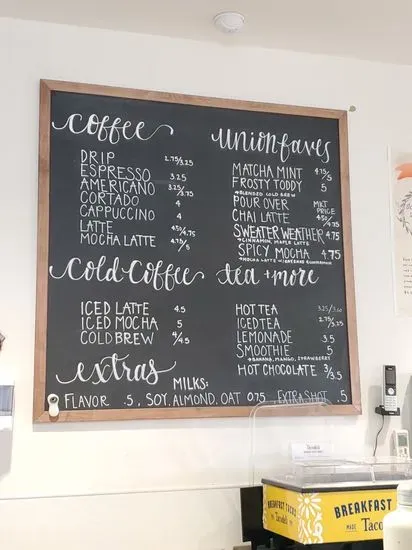 coffee
DRIP 2.75/3.25
ESPRESSO 3.25
AMERICANO 3.25/3.75
CORTADO 4
CAPPUCCINO 4
LATTE 4.50/4.75
MOCHA LATTE 4.75/5
Cold Coffee
ICED LATTE 4.5
ICED MOCHA 5
COLD BREW 4/4.5
extras
FLAVOR .5, SOY, ALMOND, OAT 0.75 EXTRA SHOT .5
MILKS:
union faves
MATCHA MINT 4.75/5
FROSTY TODDY 5
+BLENDED COLD BREW
POUR OVER MKT PRICE
CHAI LATTE 4.50/4.75
SWEATER WEATHER 4.75
+CINNAMIN, MAPLE LATTE
SPICY MOCHA 4.75
+MOCHA LATTE W/CAYENNE &CINNAMON
tea + more
HOT TEA 3.25/3.60
ICED TEA 2.75/3.25
LEMONADE 3.5
SMOOTHIE 5
+BANANA, MANGO, STRAWBERRY
HOT CHOCOLATE 3/3.5
BREAKFAST TACOS
Tacodeli
BREAKFAST
MADE Taco